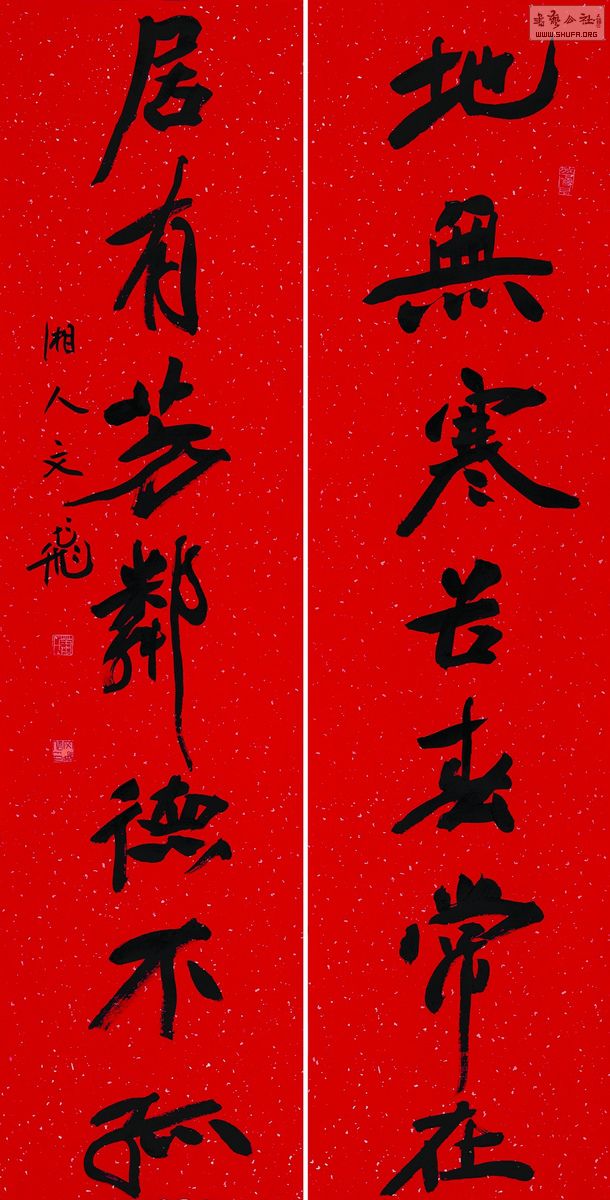 書藝公社
WWW.SHUFA.ORG
地無寒舍春常在
居有芳鄰德不孤
湘人文飛